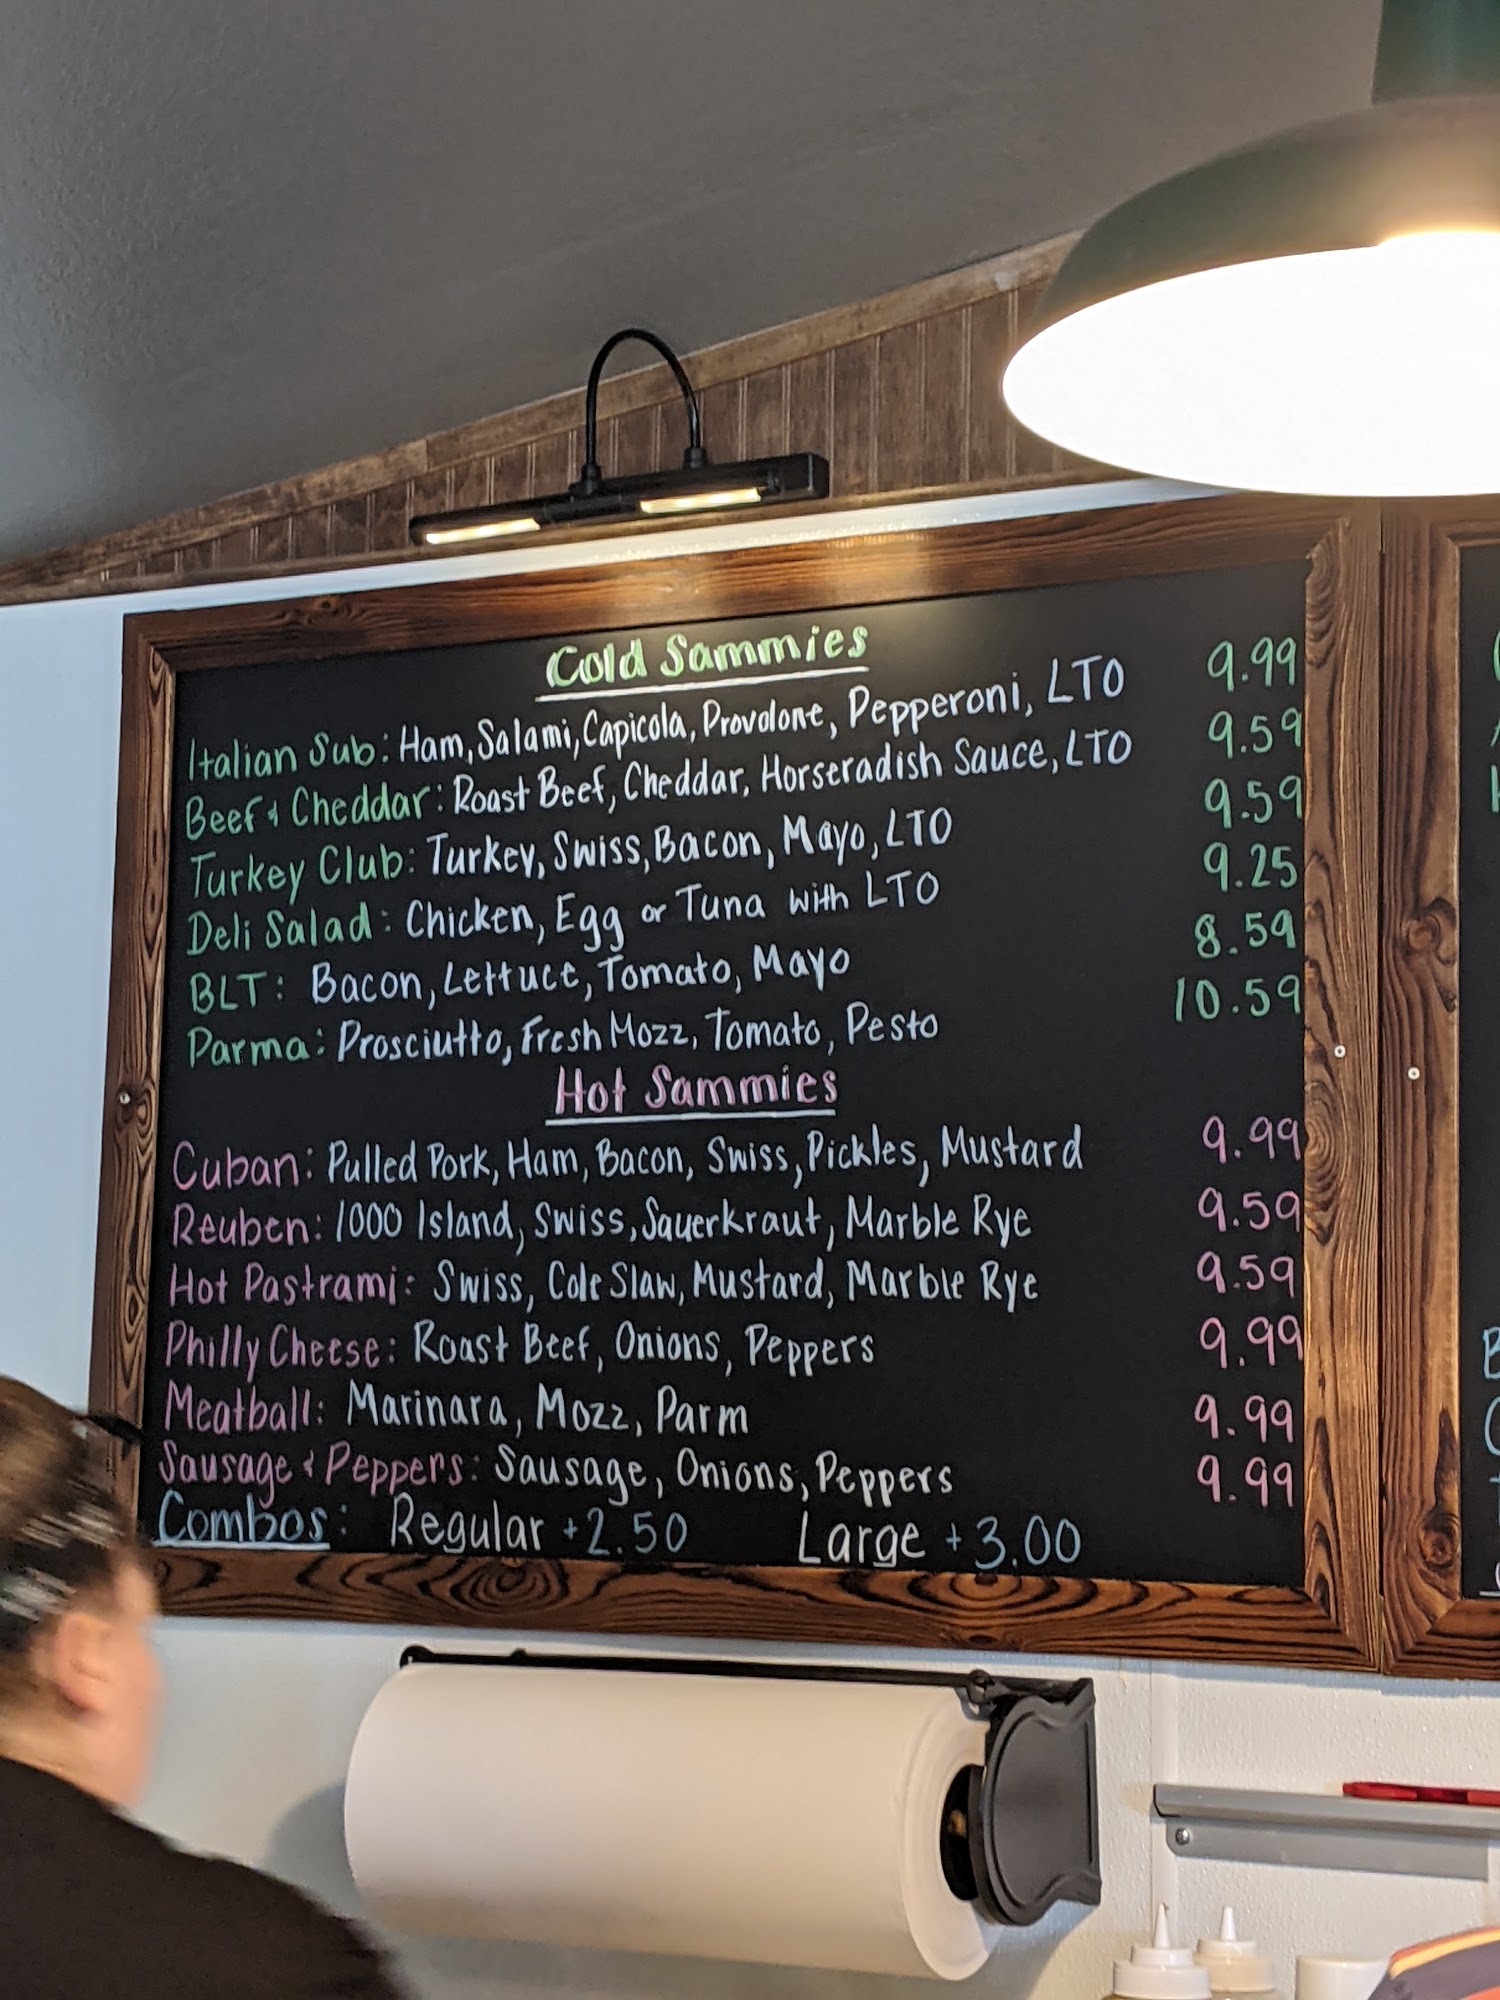 Cold Sammies
Italian Sub: Ham, Salami, Capicola, Provolone, Pepperoni, LTO 9.99
Beef & Cheddar: Roast Beef, Cheddar, Horseradish Sauce, LTO 9.59
Turkey Club: Turkey, Swiss, Bacon, Mayo, LTO 9.59
Deli Salad: Chicken, Egg or Tuna with LTO 9.25
BLT: Bacon, Lettuce, Tomato, Mayo 8.59
Parma: Prosciutto, Fresh Mozz, Tomato, Pesto 10.59
Hot Sammies
Cuban: Pulled Pork, Ham, Bacon, Swiss, Pickles, Mustard 9.99
Reuben: 1000 Island, Swiss, Sauerkraut, Marble Rye 9.59
Hot Pastrami: Swiss, Cole Slaw, Mustard, Marble Rye 9.59
Philly Cheese: Roast Beef, Onions, Peppers 9.99
Meatball: Marinara, Mozz, Parm 9.99
Sausage & Peppers: Sausage, Onions, Peppers 9.99
Combos: Regular +2.50 Large +3.00